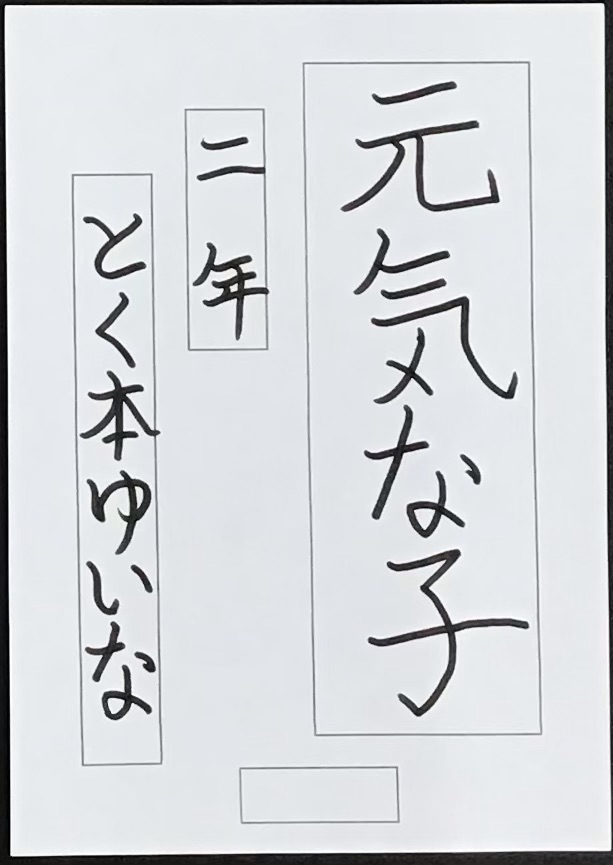 元気な子
二年
とく本ゆいな